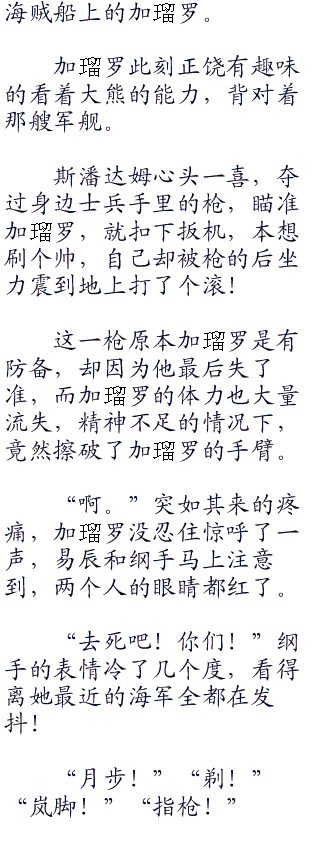 海贼船上的加瑠罗。
加瑠罗此刻正饶有趣味
的看着大熊的能力，背对着
那艘军舰。
斯潘达姆心头一喜，夺
过身边士兵手里的枪，瞄准
加瑠罗，就扣下扳机，本想
刷个帅，自己却被枪的后坐
力震到地上打了个滚！
这一枪原本加瑠罗是有
防备，却因为他最后失了
准，而加瑠罗的体力也大量
流失，精神不足的情况下，
竟然擦破了加瑠罗的手臂。
“啊。”突如其来的疼
痛，加瑠罗没忍住惊呼了一
声，易辰和纲手马上注意
到，两个人的眼睛都红了。
“去死吧！你们！”纲
手的表情冷了几个度，看得
离她最近的海军全都在发
抖！
“月步！”“剃！”
“岚脚！”“指枪！”